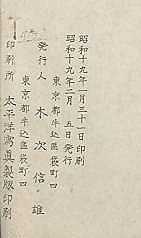 昭和十九年一月三十一日印刷
昭和十九年二月五日発行
東京都牛込區袋町四
発行人 木次信雄
東京都牛込區袋町四
印刷所 太平洋寫眞製版印刷